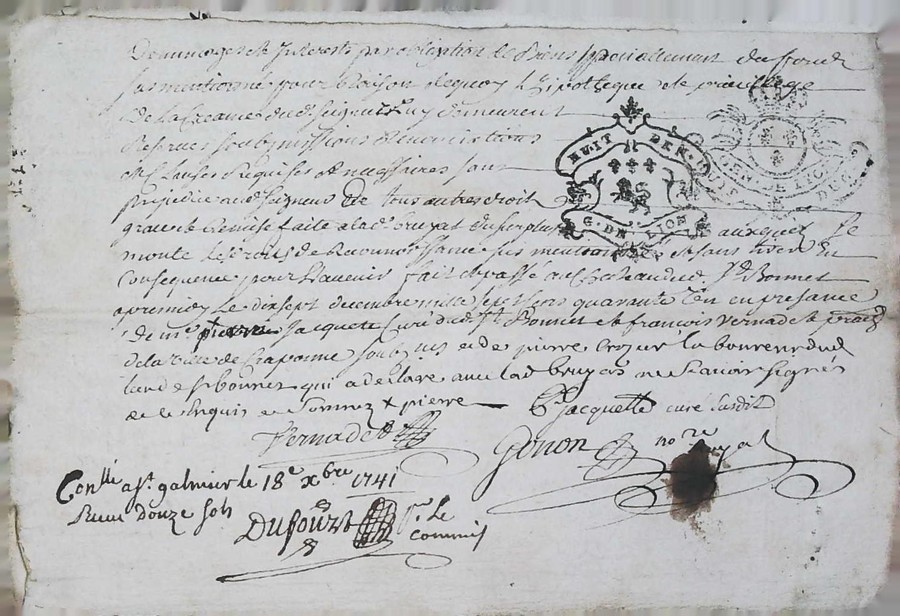 Dommages et Interests par obligation de Biens speciallement du fond
sus mentionné pour Raison dequoy L'Ipotheque et le privillege
De la Creance dud seigneur luy demeurent
Reserves soubmissions Renonciations
et Clauses Requises et necessaires sans
prejudice aud seigneur De tous autres droits
grace et Remise faite a lad bruyas du surplus auxquels se
monte les droits de Reconnoissance sus mentionnés sans tirer En
Consequence pour L'avenir fait et passé au Chateau dud St Bonnet
apremidy Le dixsept decembre mille sept Cens quarante Un en presance
De mre pierre Jacquete Curé dud St Bonnet et françois Vernadet
de la Ville de Craponne soubsignes et de pierre Crozet laboureur dud
lieu de St bonnet qui a declaré avec lad bruyas ne scavoir signer
de ce Enquis et Sommez x pierre
Jacquette curé susdit
Vernadet
Gonon nore
HUIT DEN.
G. DE LION
Conllé a St galmier le 18e xbre 1741
Receu douze sols
Dufour
Le
commis